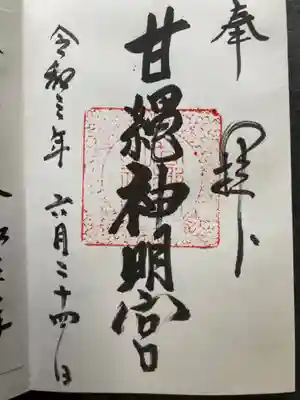 奉
拝
甘縄神明宮
令和三年 六月二十四日